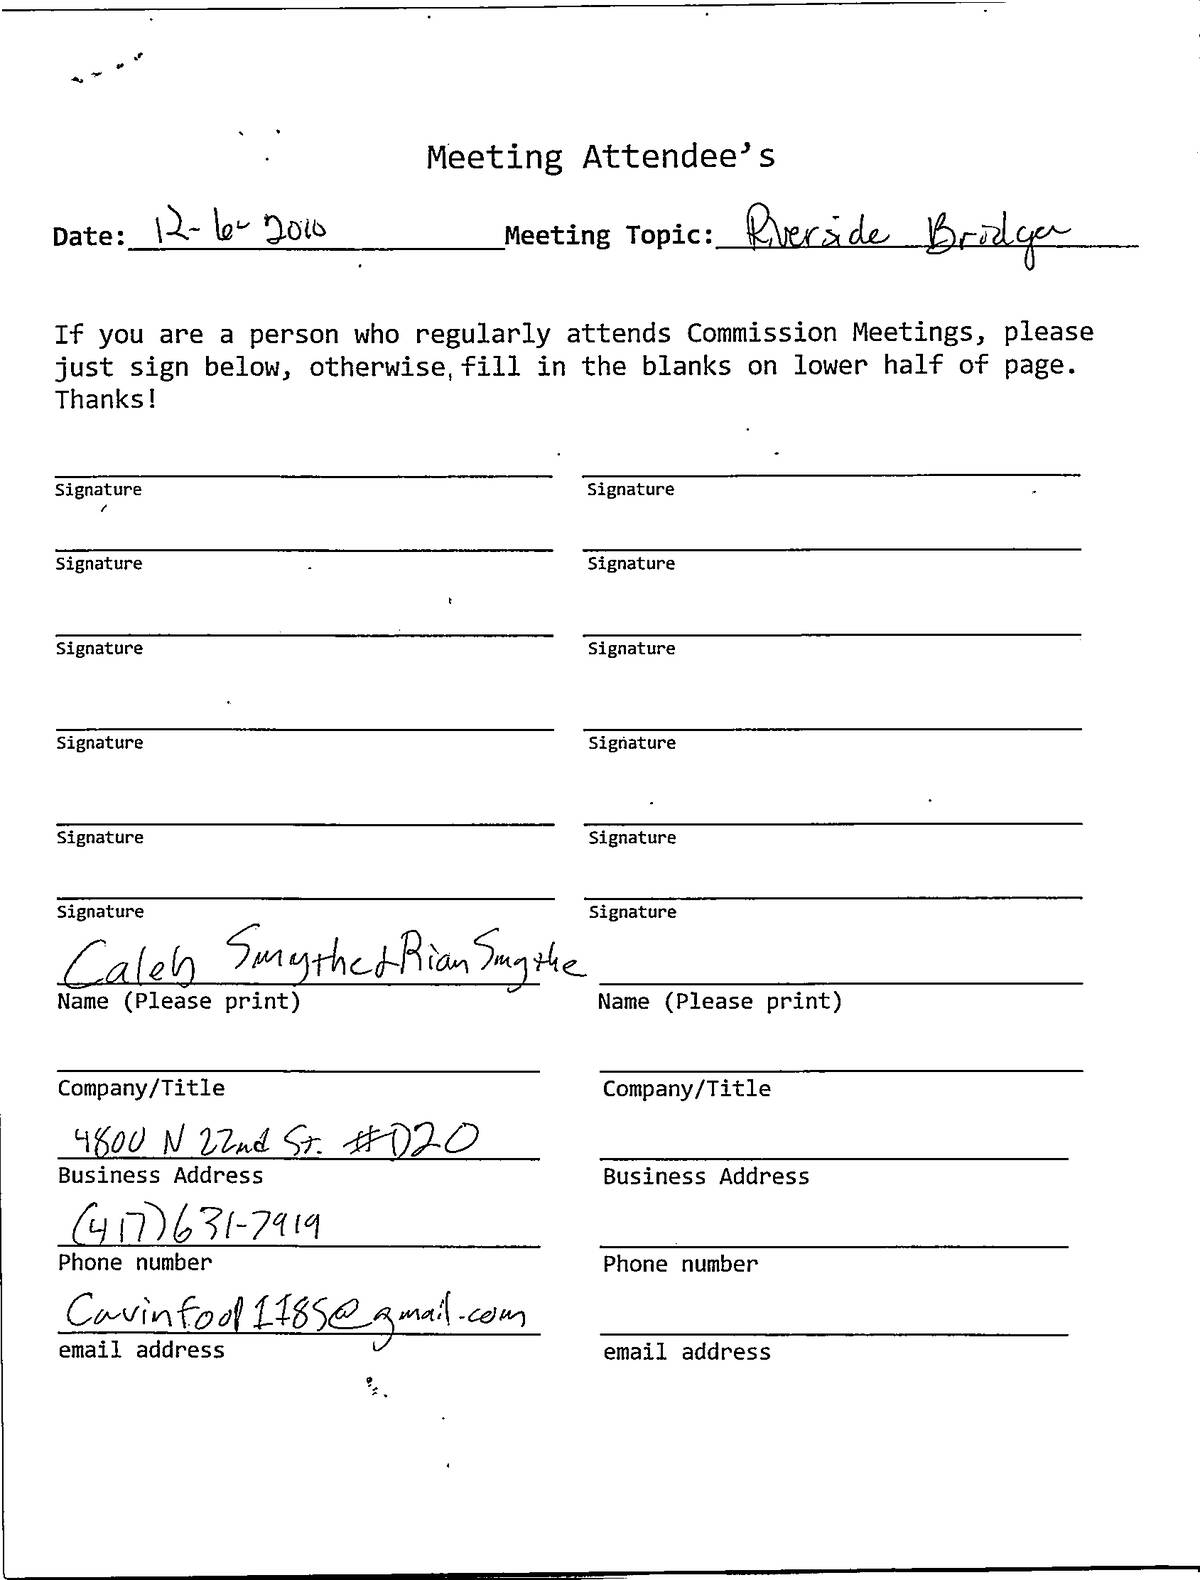 Meeting Attendee's
Date: 12-6-2010 Meeting Topic: Riverside Bridge
If you are a person who regularly attends Commission Meetings, please
just sign below, otherwise, fill in the blanks on lower half of page.
Thanks!
Signature Signature
Signature Signature
Signature Signature
Signature Signature
Signature Signature
Signature Signature
Caleb Smythe & Rian Smythe
Name (Please print) Name (Please print)
Company/Title Company/Title
4800 N 22nd St. #D20
Business Address Business Address
(417)631-7919
Phone number Phone number
Cavinfool1185@gmail.com
email address email address